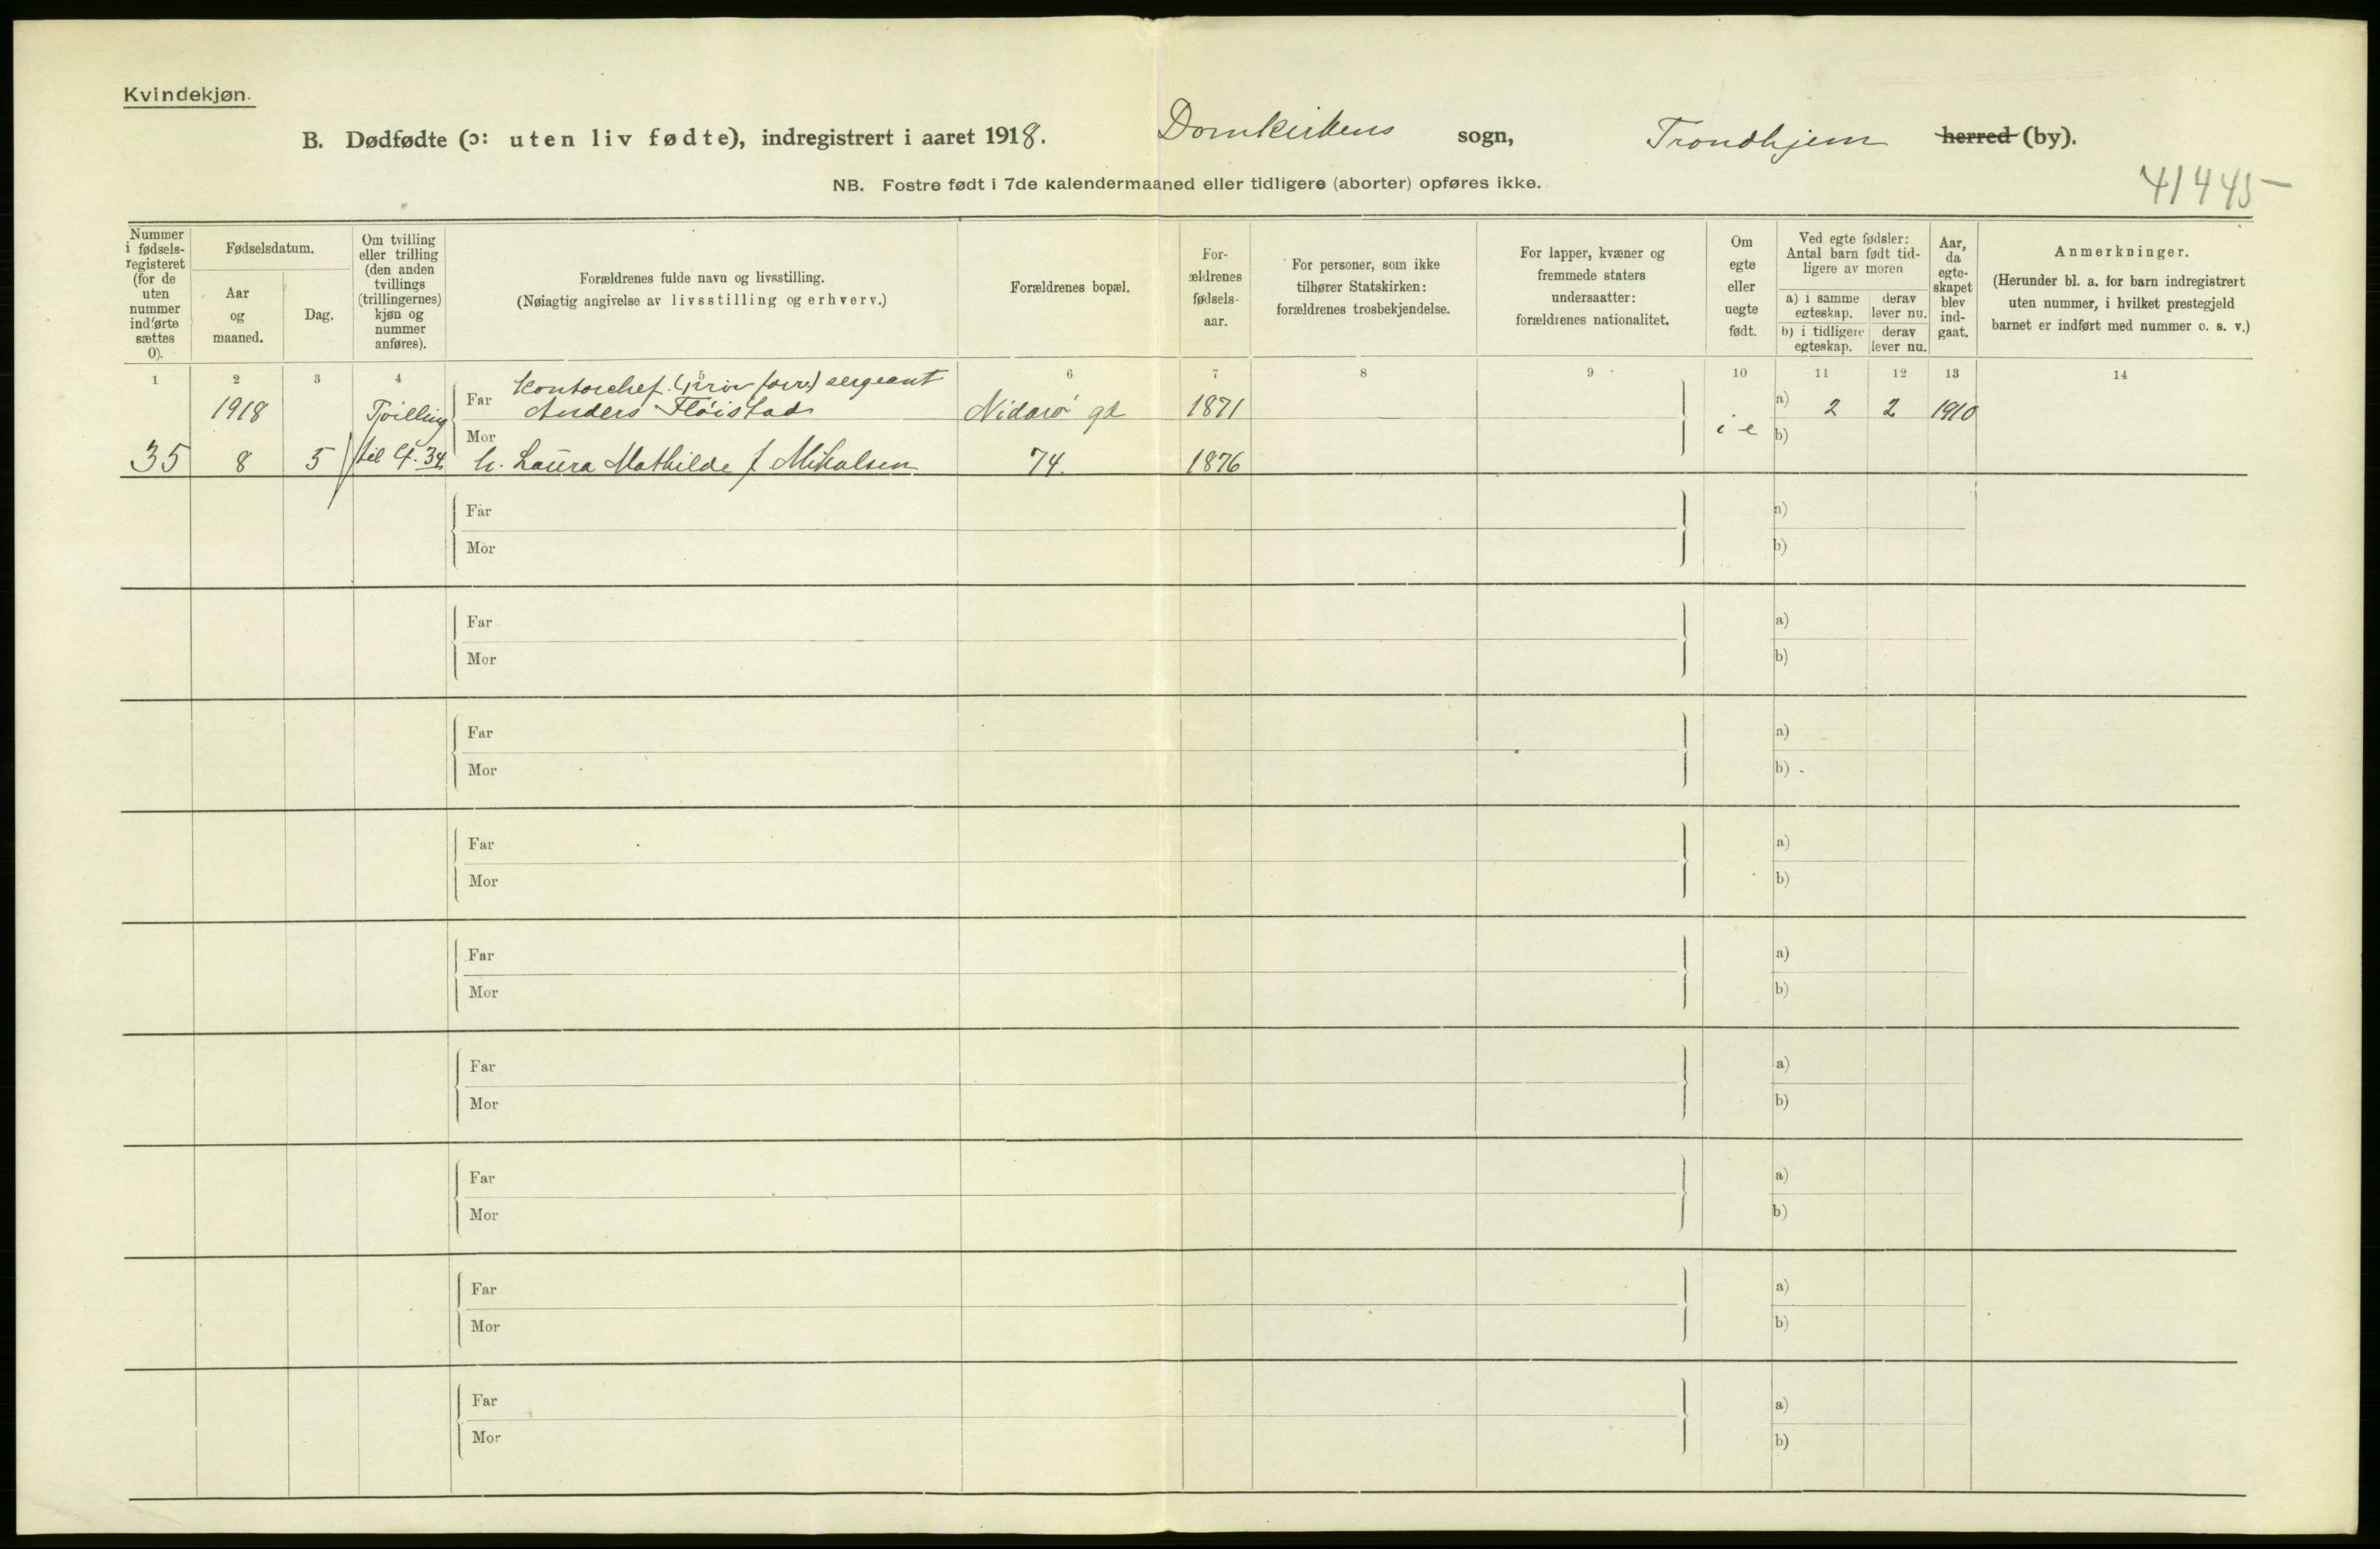 Kvindekjøn.
B. Dødfødte (ɔ: uten liv fødte), indregistrert i aaret 1918. Domkirkens sogn, Trondhjem herred (by).
NB. Fostre født i 7de kalendermaaned eller tidligere (aborter) opføres ikke.
41445
Nummer i fødsels-registeret (for de uten nummer indførte sættes 0).
Fødselsdatum.
Aar og maaned.
Dag.
Om tvilling eller trilling (den anden tvillings (trillingernes) kjøn og nummer anføres).
Forældrenes fulde navn og livsstilling.
(Nøiagtig angivelse av livsstilling og erhverv.)
Forældrenes bopæl.
For-ældrenes fødsels-aar.
For personer, som ikke tilhører Statskirken: forældrenes trosbekjendelse.
For lapper, kvæner og fremmede staters undersaatter: forældrenes nationalitet.
Om egte eller uegte født.
Ved egte fødsler: Antal barn født tid-ligere av moren
a) i samme egteskap.
derav lever nu.
b) i tidligere egteskap.
derav lever nu.
Aar, da egte-skapet blev ind-gaat.
Anmerkninger.
(Herunder bl. a. for barn indregistrert uten nummer, i hvilket prestegjeld barnet er indført med nummer o. s. v.)
1 2 3 4 5 6 7 8 9 10 11 12 13 14
Kontorchef sergeant
1918 Tvilling Far Anders Fløistad Nidarø gt 1871 a) 2 2 1910
Mor i e b)
35 8 5 til 34 h. Laura Mathilde f Mikalsen 74. 1876
Far a)
Mor b)
Far a)
Mor b)
Far a)
Mor b)
Far a)
Mor b)
Far a)
Mor b)
Far a)
Mor b)
Far a)
Mor b)
Far a)
Mor b)
Far a)
Mor b)